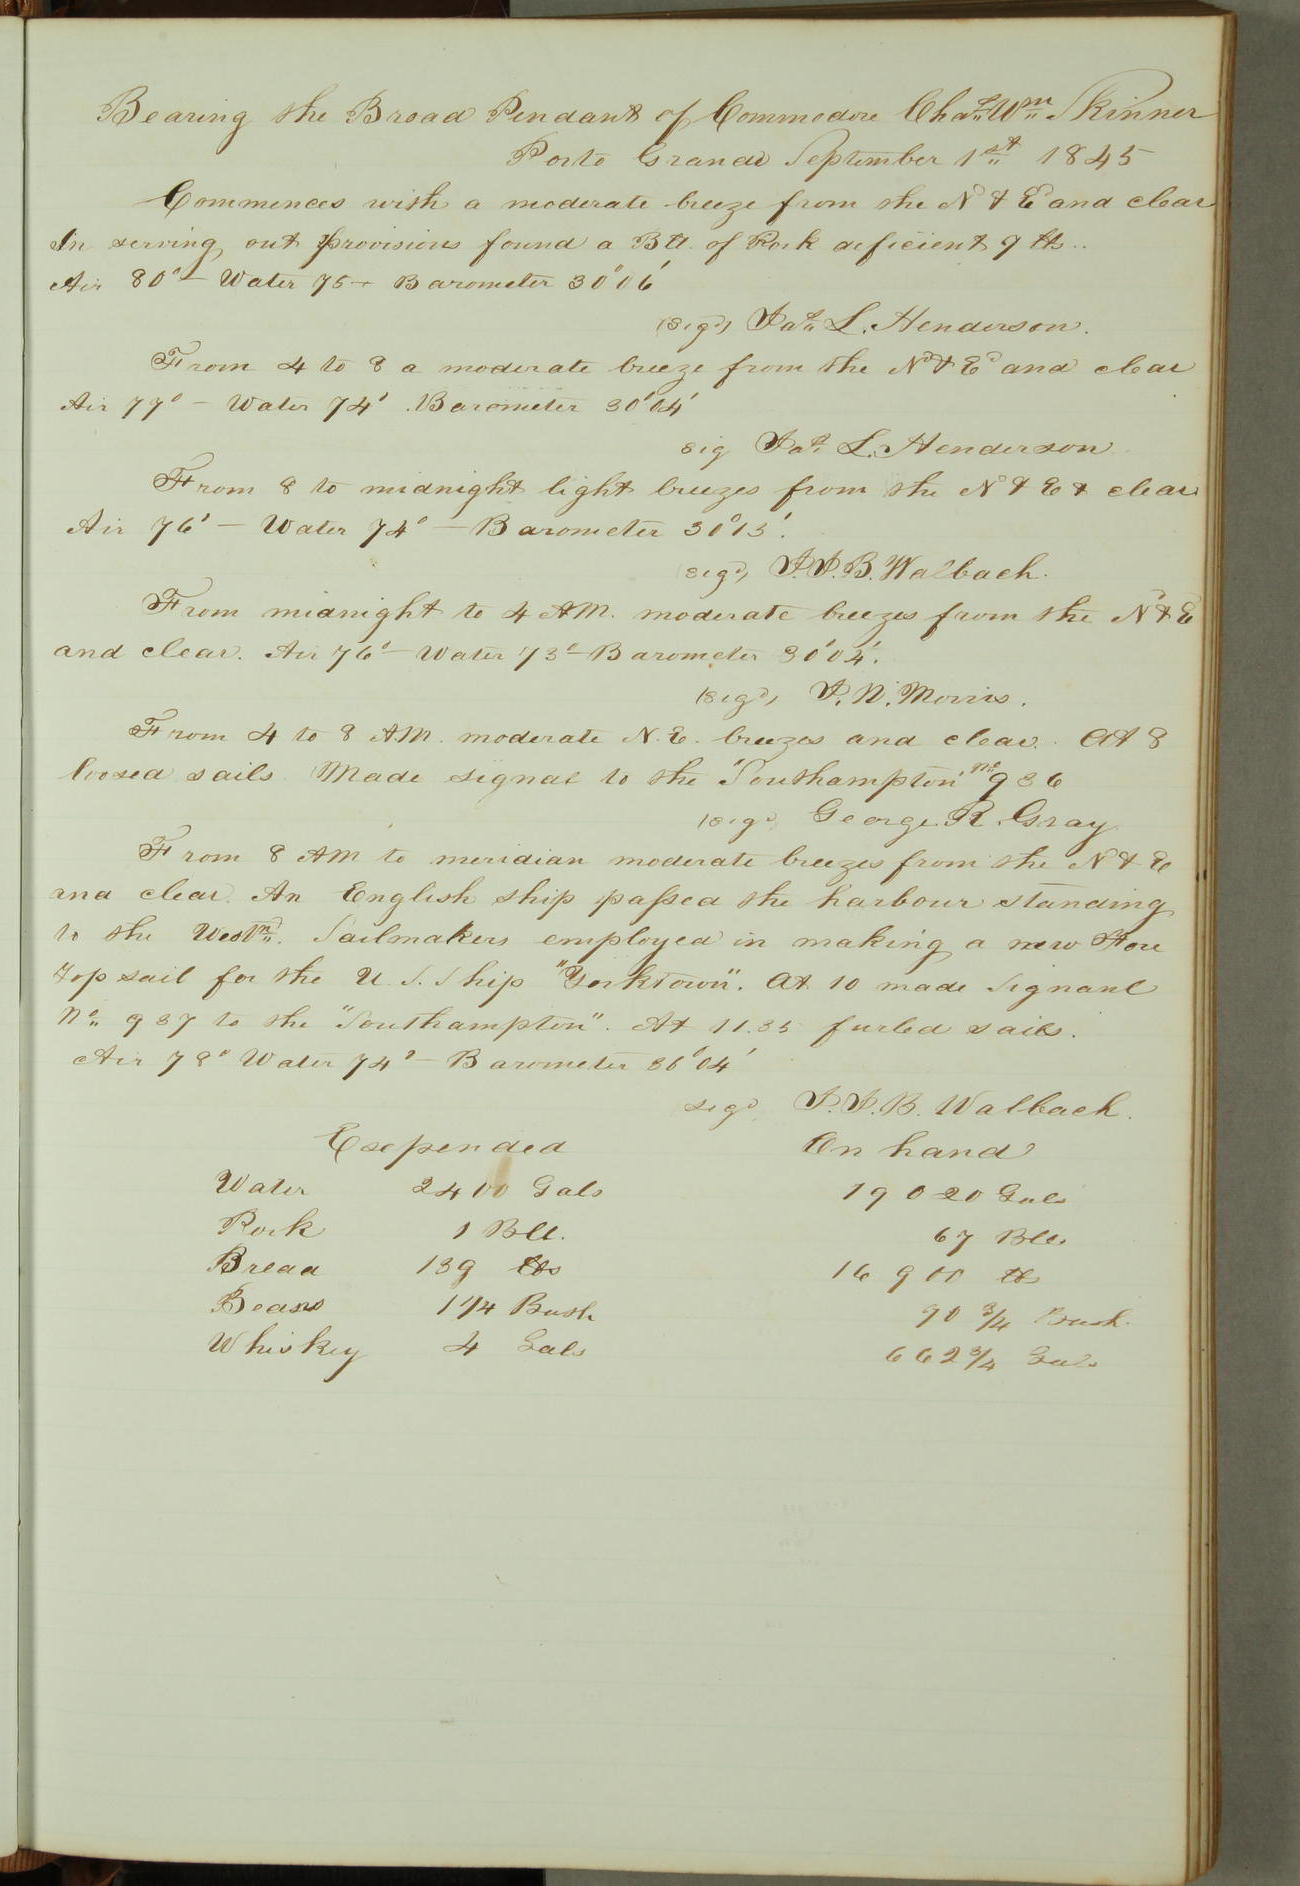 Bearing the Broad Pendant of Commodore Chas Wm Skinner
Porto Grande September 1st 1845
Commences with a moderate breeze from the Nd & Ed and clear
In serving out provisions found a Bll. of Pork deficient 9 lbs..
Air 80° — Water 75 — Barometer 30°06'
(Sigd) Jas L. Henderson.
From 4 to 8 a moderate breeze from the Nd & Ed and clear
Air 77° — Water 74° . Barometer 30°04'
sig Jas L. Henderson
From 8 to midnight light breezes from the N & E & clear
Air 76° — Water 74° — Barometer 30°13'.
(sigd) J.J.B. Walbach.
From midnight to 4 AM. moderate breezes from the Nd & E
and clear. Air 76° — Water 73° — Barometer 30°04'.
(Sigd) J. N. Morris.
From 4 to 8 AM. moderate N. E. breezes and clear. At 8
loosed sails. Made signal to the "Southampton" No 936
(sigd) George R. Gray
From 8 AM to meridian moderate breezes from the N & E
and clear. An English ship passed the harbour standing
to the Westd. Sailmakers employed in making a new Fore
Top sail for the U. S. Ship "Yorktown". At 10 made Signanl
No 937 to the "Southampton". At 11.35 furled sails.
Air 78° Water 74° — Barometer 30°04'
sigd J.J.B. Walbach.
Expended On hand
Water 2400 Gals 19020 Gals
Pork 1 Bll. 67 Blls
Bread 139 lbs 16900 lbs
Beans 1 1/4 Bush 90 3/4 Bush.
Whiskey 4 Gals 662 3/4 Gals